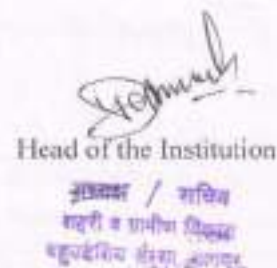 Head of the Institution
अध्यक्ष / सचिव
शहरी व ग्रामीण विकास
बहुउद्देशिय संस्था